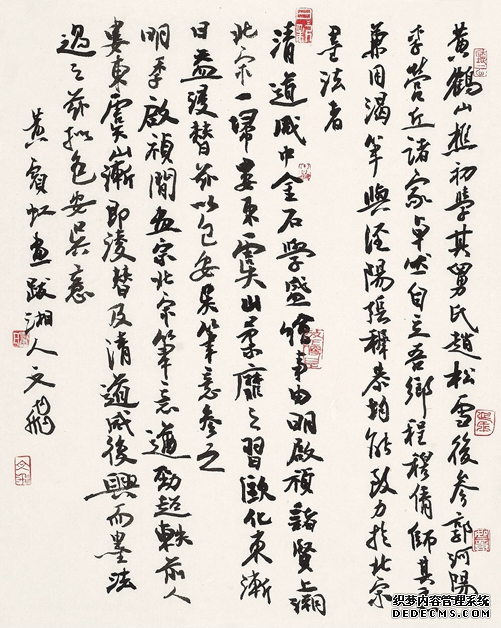 黄鹤山樵初學其舅氏趙松雪後参郭河陽
李营丘諸家卓然自立吾鄉程穆倩師其意
兼用渴筆與泾陽張穉恭均能致力於北宋
墨法者
清道咸中金石學盛繪事由明啟禎諸賢上溯
北宋一掃婁東虞山柔靡之習歐化東漸
日益凌替茲以包安吳筆意参之
明季啟禎間画宗北宋筆意遒勁超軼前人
婁東虞山漸即凌替及清道咸後興而墨法
過之茲擬包安吳意
黄賓虹画跋湘人文
织梦内容管理系统
DEDECMS.COM